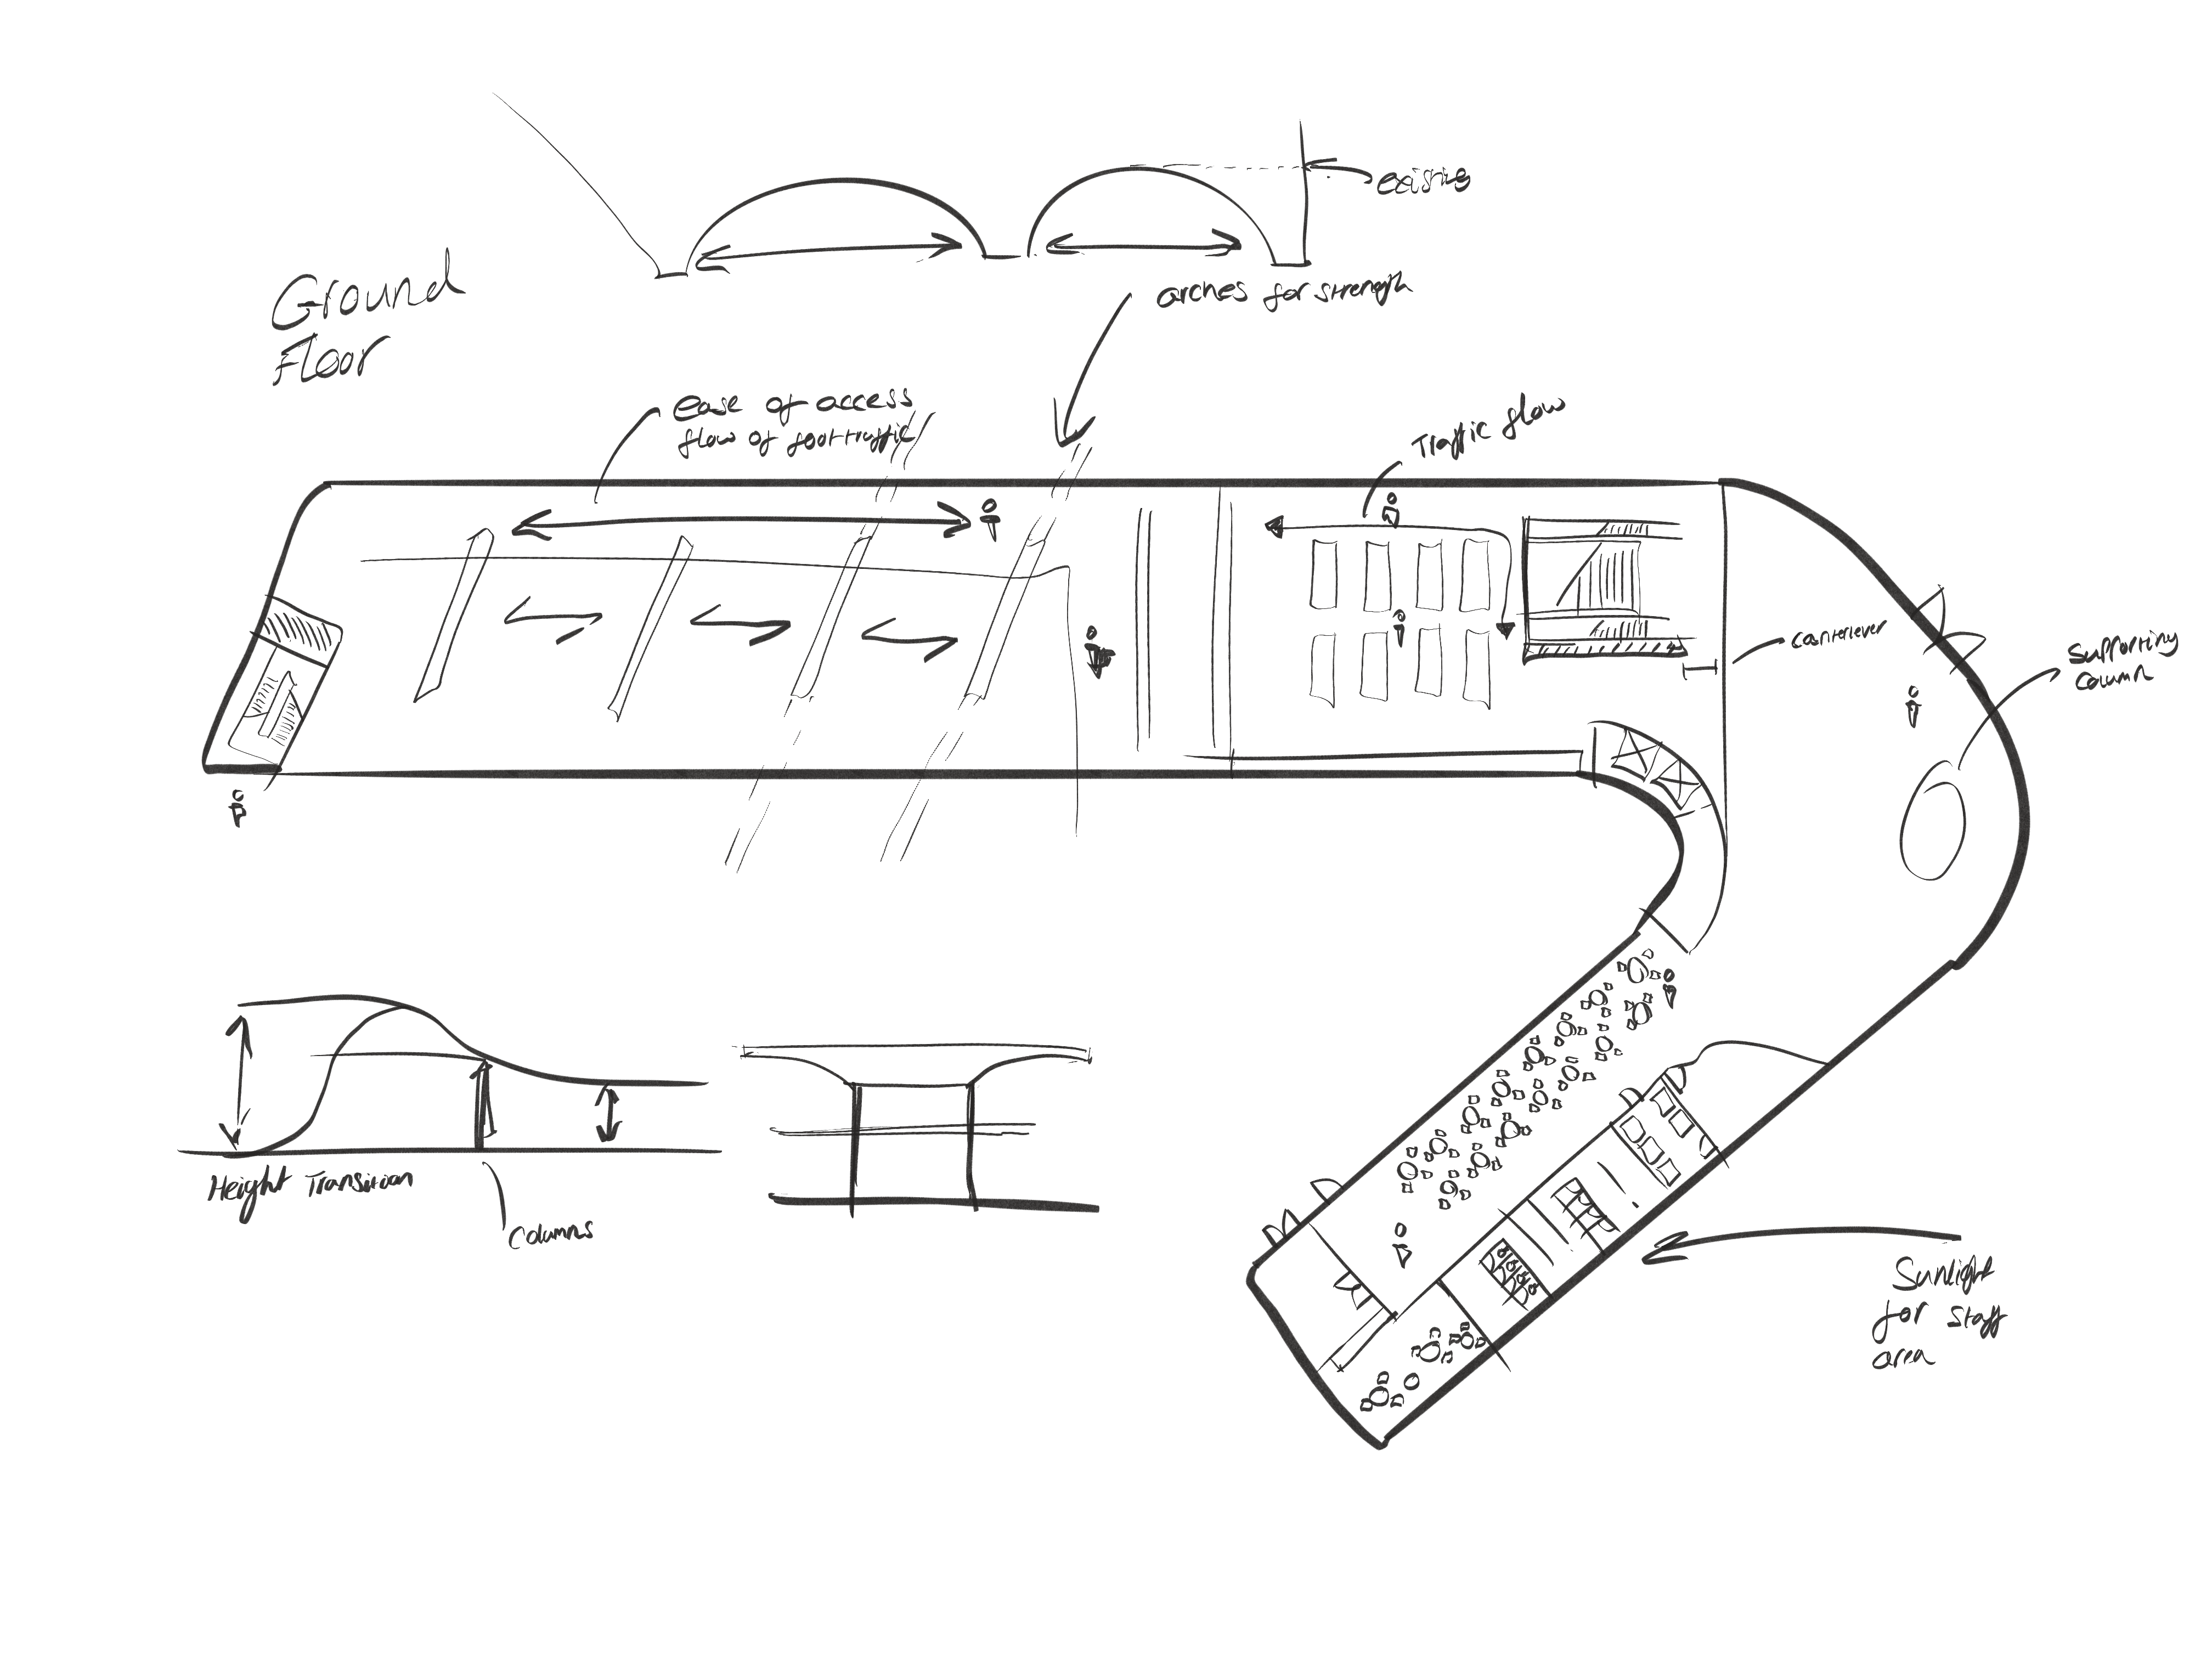 existing
arches for strength
Ground
Floor
ease of access
flow of foot traffic
Traffic flow
canterlever
Supporting
column
Height Transition
Columns
Sunlight
for Staff
area